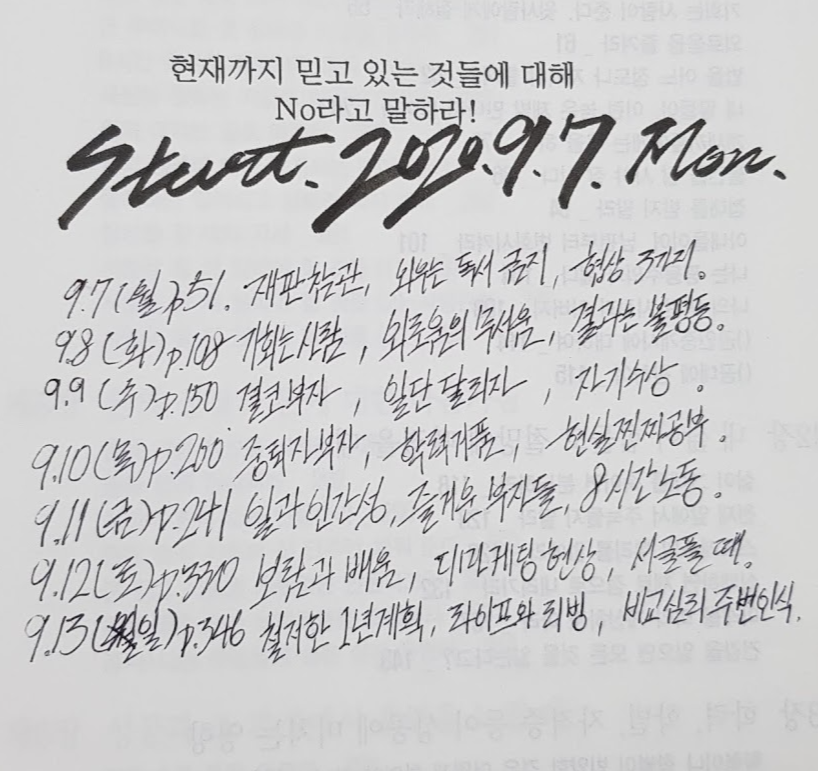 현재까지 믿고 있는 것들에 대해
No라고 말하라!
Start. 2020.9.7. Mon.
9.7(월)p.51. 재판참관, 외우는 독서 금지, 협상 3가지.
9.8(화)p.108 기회는 사람, 외로움의 무서움, 결과는 불평등.
9.9(수)p.150 결코부자, 일단 달리자, 자기수상.
9.10(목)p.200 중퇴자부자, 학력거품, 현실진짜공부.
9.11(금)p.241 일과 인간성, 즐거운 부자들, 8시간노동.
9.12(토)p.330 보람과 배움, 디마케팅 현상, 서글플 때.
9.13(일)p.346 철저한 1년계획, 라이프와 리빙, 비교심리 주변인식.